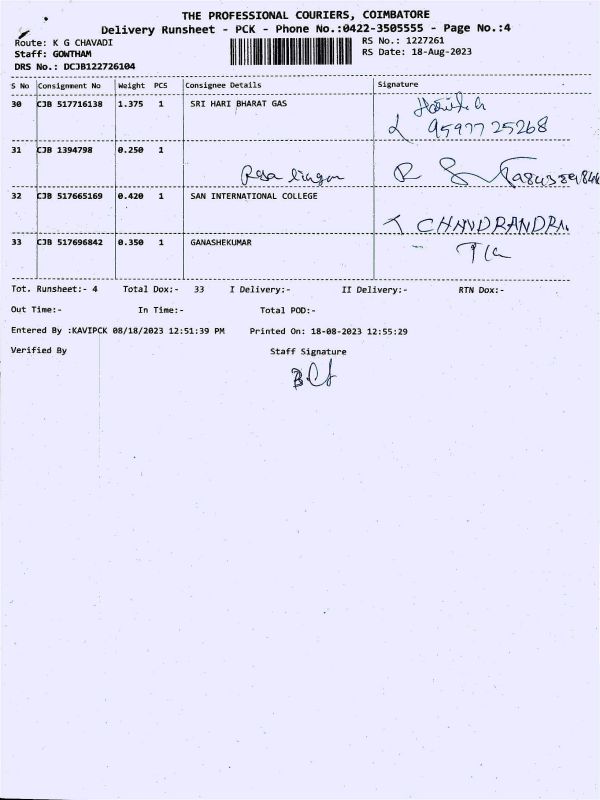 THE PROFESSIONAL COURIERS, COIMBATORE
Delivery Runsheet - PCK - Phone No.:0422-3505555 - Page No.:4
Route: K G CHAVADI
RS No.: 1227261
Staff: GOWTHAM
RS Date: 18-Aug-2023
DRS No.: DCJB122726104
S No Consignment No Weight PCS Consignee Details Signature
30 CJB 517716138 1.375 1 SRI HARI BHARAT GAS
95977 25268
31 CJB 1394798 0.250 1
32 CJB 517665169 0.420 1 SAN INTERNATIONAL COLLEGE
33 CJB 517696842 0.350 1 GANASHEKUMAR
Tot. Runsheet:- 4 Total Dox:- 33 I Delivery:- II Delivery:- RTN Dox:-
Out Time:- In Time:- Total POD:-
Entered By :KAVIPCK 08/18/2023 12:51:39 PM Printed On: 18-08-2023 12:55:29
Verified By Staff Signature